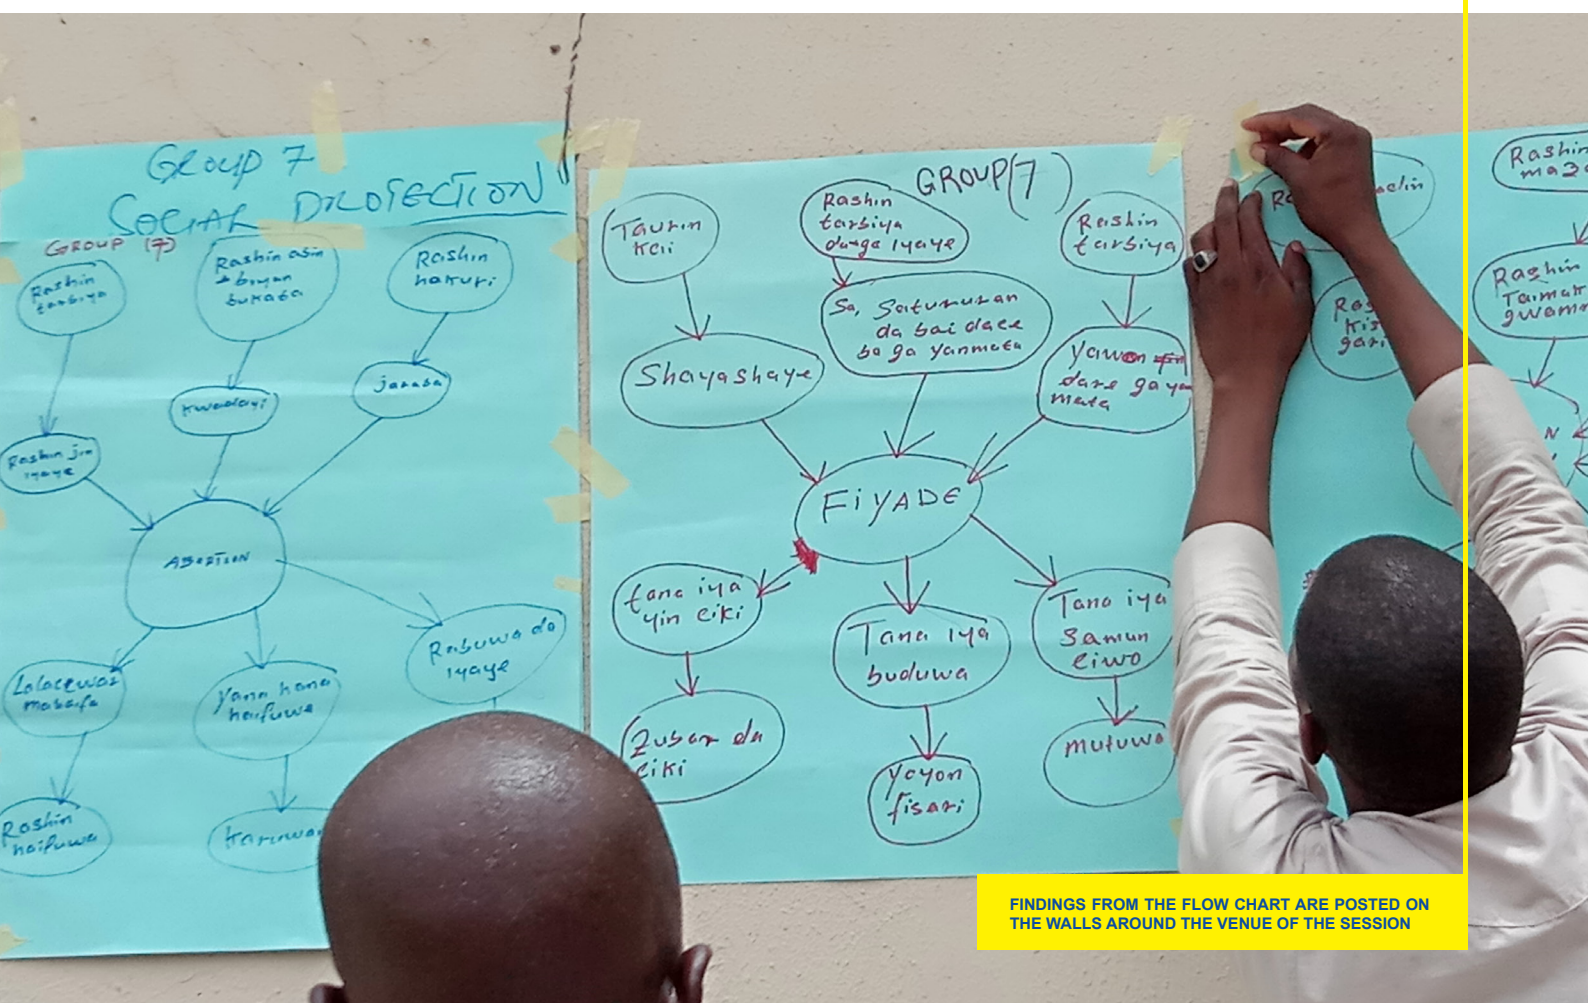 GROUP 7
SOCIAL PROTECTION
GROUP (7)
Rashin
tarbiya
Rashin abin
biyan
bukata
Rashin
hakuri
Kwadayi
jaraba
Rashin jin
iyaye
ABORTION
Lalacewar
mahaifa
Yana hana
haifuwa
Rabuwa da
iyaye
Rashin
haifuwa
GROUP (7)
Taurin
Kai
Rashin
tarbiya
daga iyaye
Rashin
tarbiya
Shayashaye
Sa, Sutururan
da bai dace
ba ga yanmata
Yawon
dare ga yan
mata
FIYADE
tana iya
yin ciki
Tana iya
buduwa
Tana iya
Samun
ciwo
Zubar da
ciki
yoyon
fisari
mutuwa
Rashin
Rashin
gwamn
FINDINGS FROM THE FLOW CHART ARE POSTED ON
THE WALLS AROUND THE VENUE OF THE SESSION